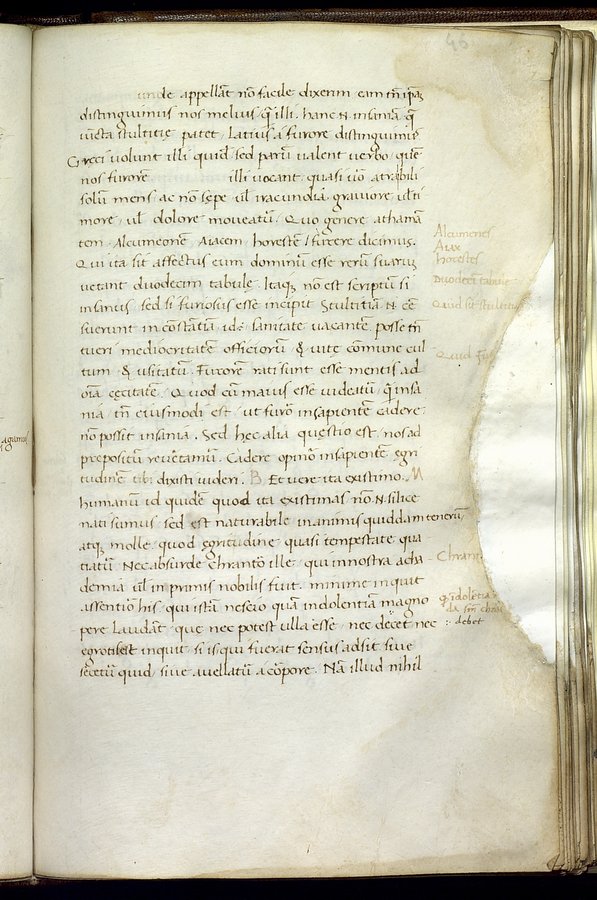 unde appellāt nō facile dixerim eam tn̄ ipaꝫ
distinguimus nos melius q̄ illi. hanc N insaniā q̄
iūcta stultitię patet. Latius a furore distinguimus
Gręci uolunt illi quid̄ sed parū ualent uerbo. quē
nos furorē illi uocant. quasi ū̊ atrabili
solū mens. ac non sępe ul̄ iracundia grauiore ul̄ ti
more. ul̄ dolore moueatur̄. Quo genere athamā
tem. Alcumeonē. Aiacem. horestē furere dicimus.
Qui ita sit affectus eum dominū esse rerū suarū
uetant duodecim tabulę. Itaqꝫ non est scriptū si
insanus sed si furiosus esse incipit Stultitiā N cē
suerunt inconstātiā idē sanitate uacantē. posse tn̄
tueri mediocritatē officiorū & uitę cōmune cul
tum & usitatū. Furorem rati sunt esse mentis ad
oīa cęcitatē. Quod cū maius esse uideatur̄ q̄ insa
nia. tn̄ eiusmodi est. ut furor in sapientē cadere
nō possit insania. Sed hęc alia quęstio est. nos ad
propositū reuertamur̄. Cadere opinor in sapientē ęgri
tudinē tibi dixisti uideri. B Et uere ita existimo. M
humanū id quidē quod ita existimas nō N silice
nati sumus sed est naturabile in animis quiddam tenerū
atqꝫ molle. quod ęgritudine quasi tempestate qua
tiatur̄. Nec absurde Chrantor ille. qui in nostra acha
demia ul̄ in primis nobilis fuit. minime inquit
assentior his. qui istā nescio quā indolentiam magno
pere laudāt. que nec potest ulla esse. nec decet nec
ęgrotisset inquit. si is qui fuerat sensus adsit siue
sęcetur quid. siue auellatū a corpore. Nā illud nihil
Alcumenes
Aiax
horestes
Duodeci tabule
Quid sit stultitia
Quid
Chrant
debet